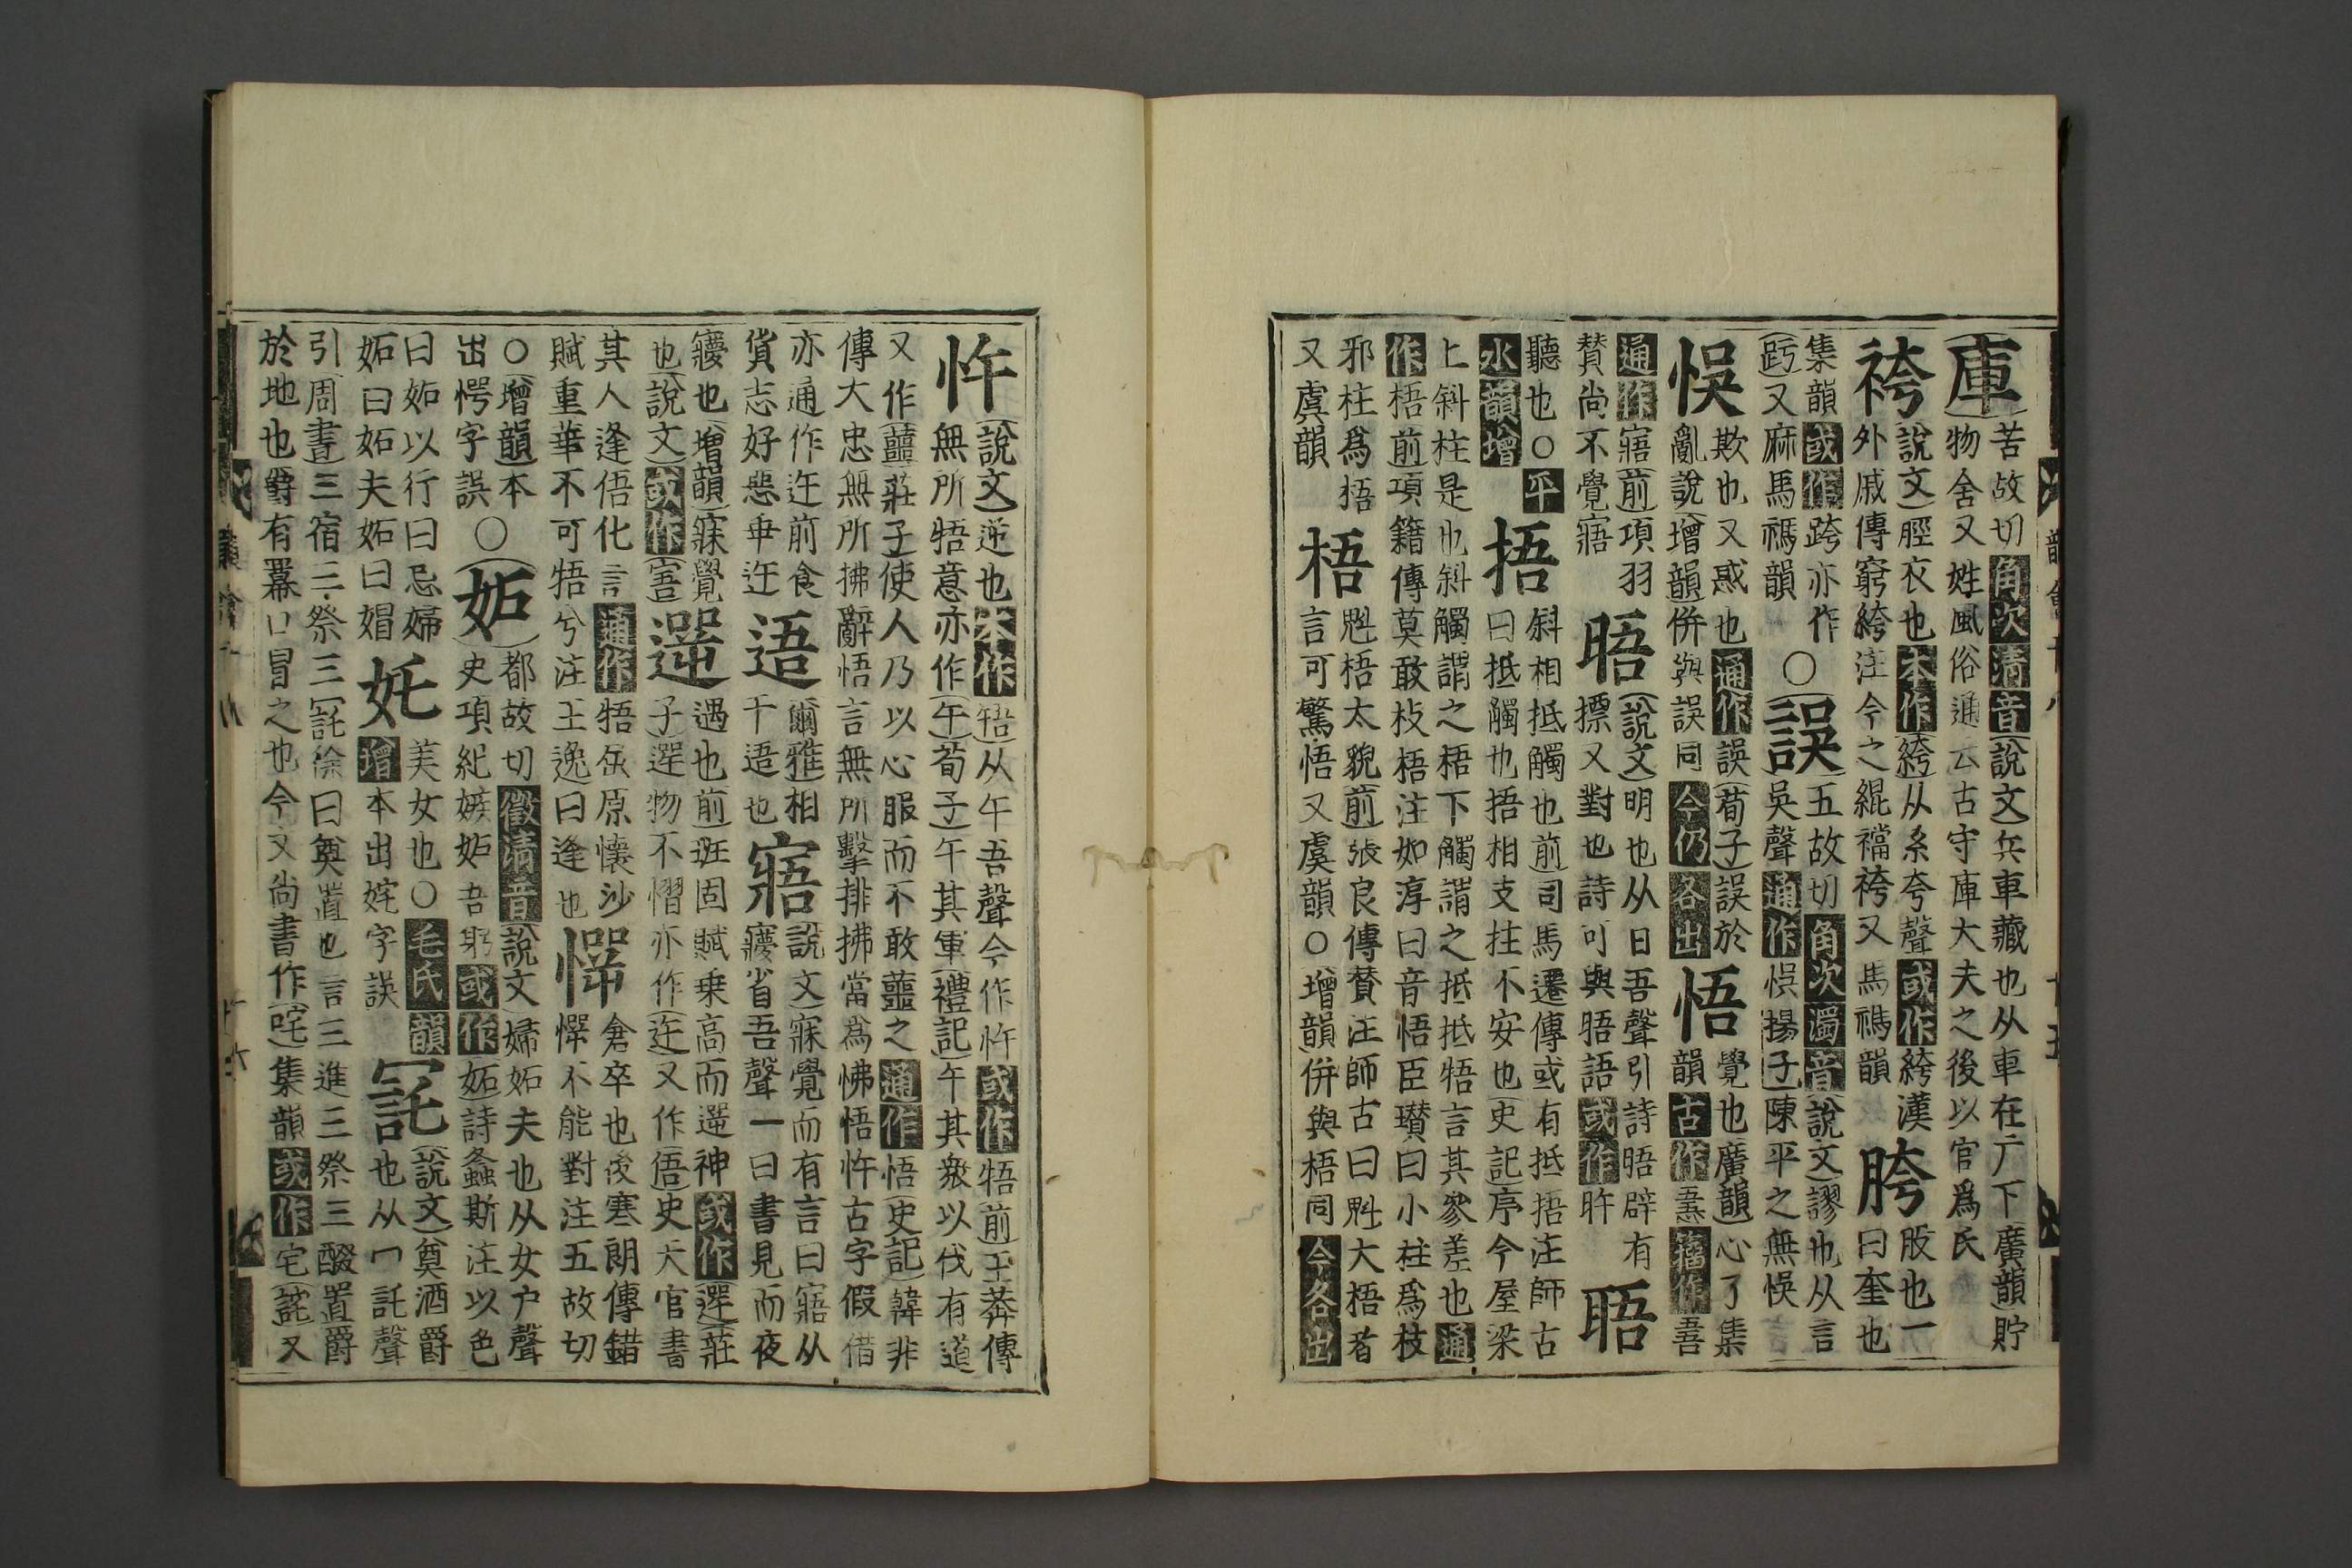 庫苦故切角次清音說文兵車藏也从車在广下廣韻貯
物舍又姓風俗通云古守庫大夫之後以官爲氏
袴說文脛衣也本作絝从糸夸聲或作絝漢
外戚傳窮絝注今之緄襠袴又馬禡韻
胯股也一
曰奎也
集韻或作跨亦作
又麻馬禡韻
○誤五故切角次濁音說文謬也从言
吳聲通作悞揚子陳平之無悞
悞欺也又惑也通作誤荀子誤於
亂說增韻併與誤同今仍各出
悟覺也廣韻心了集
韻古作籀作
通作寤前項羽
賛尚不覺寤
晤說文明也从日吾聲引詩晤辟有
摽又對也詩可與晤語或作旿
䎸
聽也○平
水韻增
捂斜相抵觸也前司馬遷傳或有抵捂注師古
曰抵觸也捂相支拄不安也史記序今屋梁
上斜柱是也斜觸謂之梧下觸謂之抵抵牾言其參差也通
作梧前項籍傳莫敢枝梧注如淳曰音悟臣瓚曰小柱爲枝
邪柱爲捂
又虞韻
梧魁梧太貌前張良傳賛注師古曰魁大梧者
言可驚悟又虞韻○增韻併與梧同今各出
忤說文逆也本作啎从午吾聲今作忤或作牾前王莽傳
無所牾意亦作午荀子午其軍禮記午其衆以伐有道
又作蘁莊子使人乃以心服而不敢蘁之通作悟史記韓非
傳大忠無所拂辭悟言無所擊排拂當爲怫悟忤古字假借
亦通作迕前食
貨志好惡乖迕
逜爾雅相
干逜也
寤說文寐覺而有言曰寤从
寢省吾聲一曰書見而夜
寢也增韻寐覺
也說文或作
遻遇也前班固賦乗高而遻神或作遌莊
子遌物不慴亦作迕又作俉史天官書
其人逢俉化言通作牾屈原懷沙
賦重華不可牾兮注王逸曰逢也
㦍倉卒也後寒朗傳錯
㦍不能對注五故切
○增韻本
出愕字誤
○妬都故切徵清音說文婦妬夫也从女户聲
史項紀嫉妬吾躬或作妬詩螽斯注以色
曰妬以行曰忌婦
妬曰妬夫妬曰媢
奼美女也○毛氏韻
增本出姹字誤
說文奠酒爵
也从冖託聲
引周書三宿三祭三徐曰奠置也言三進三祭三醊置爵
於地也爵有冪口冒之也今又尚書作咤集韻或作宅又